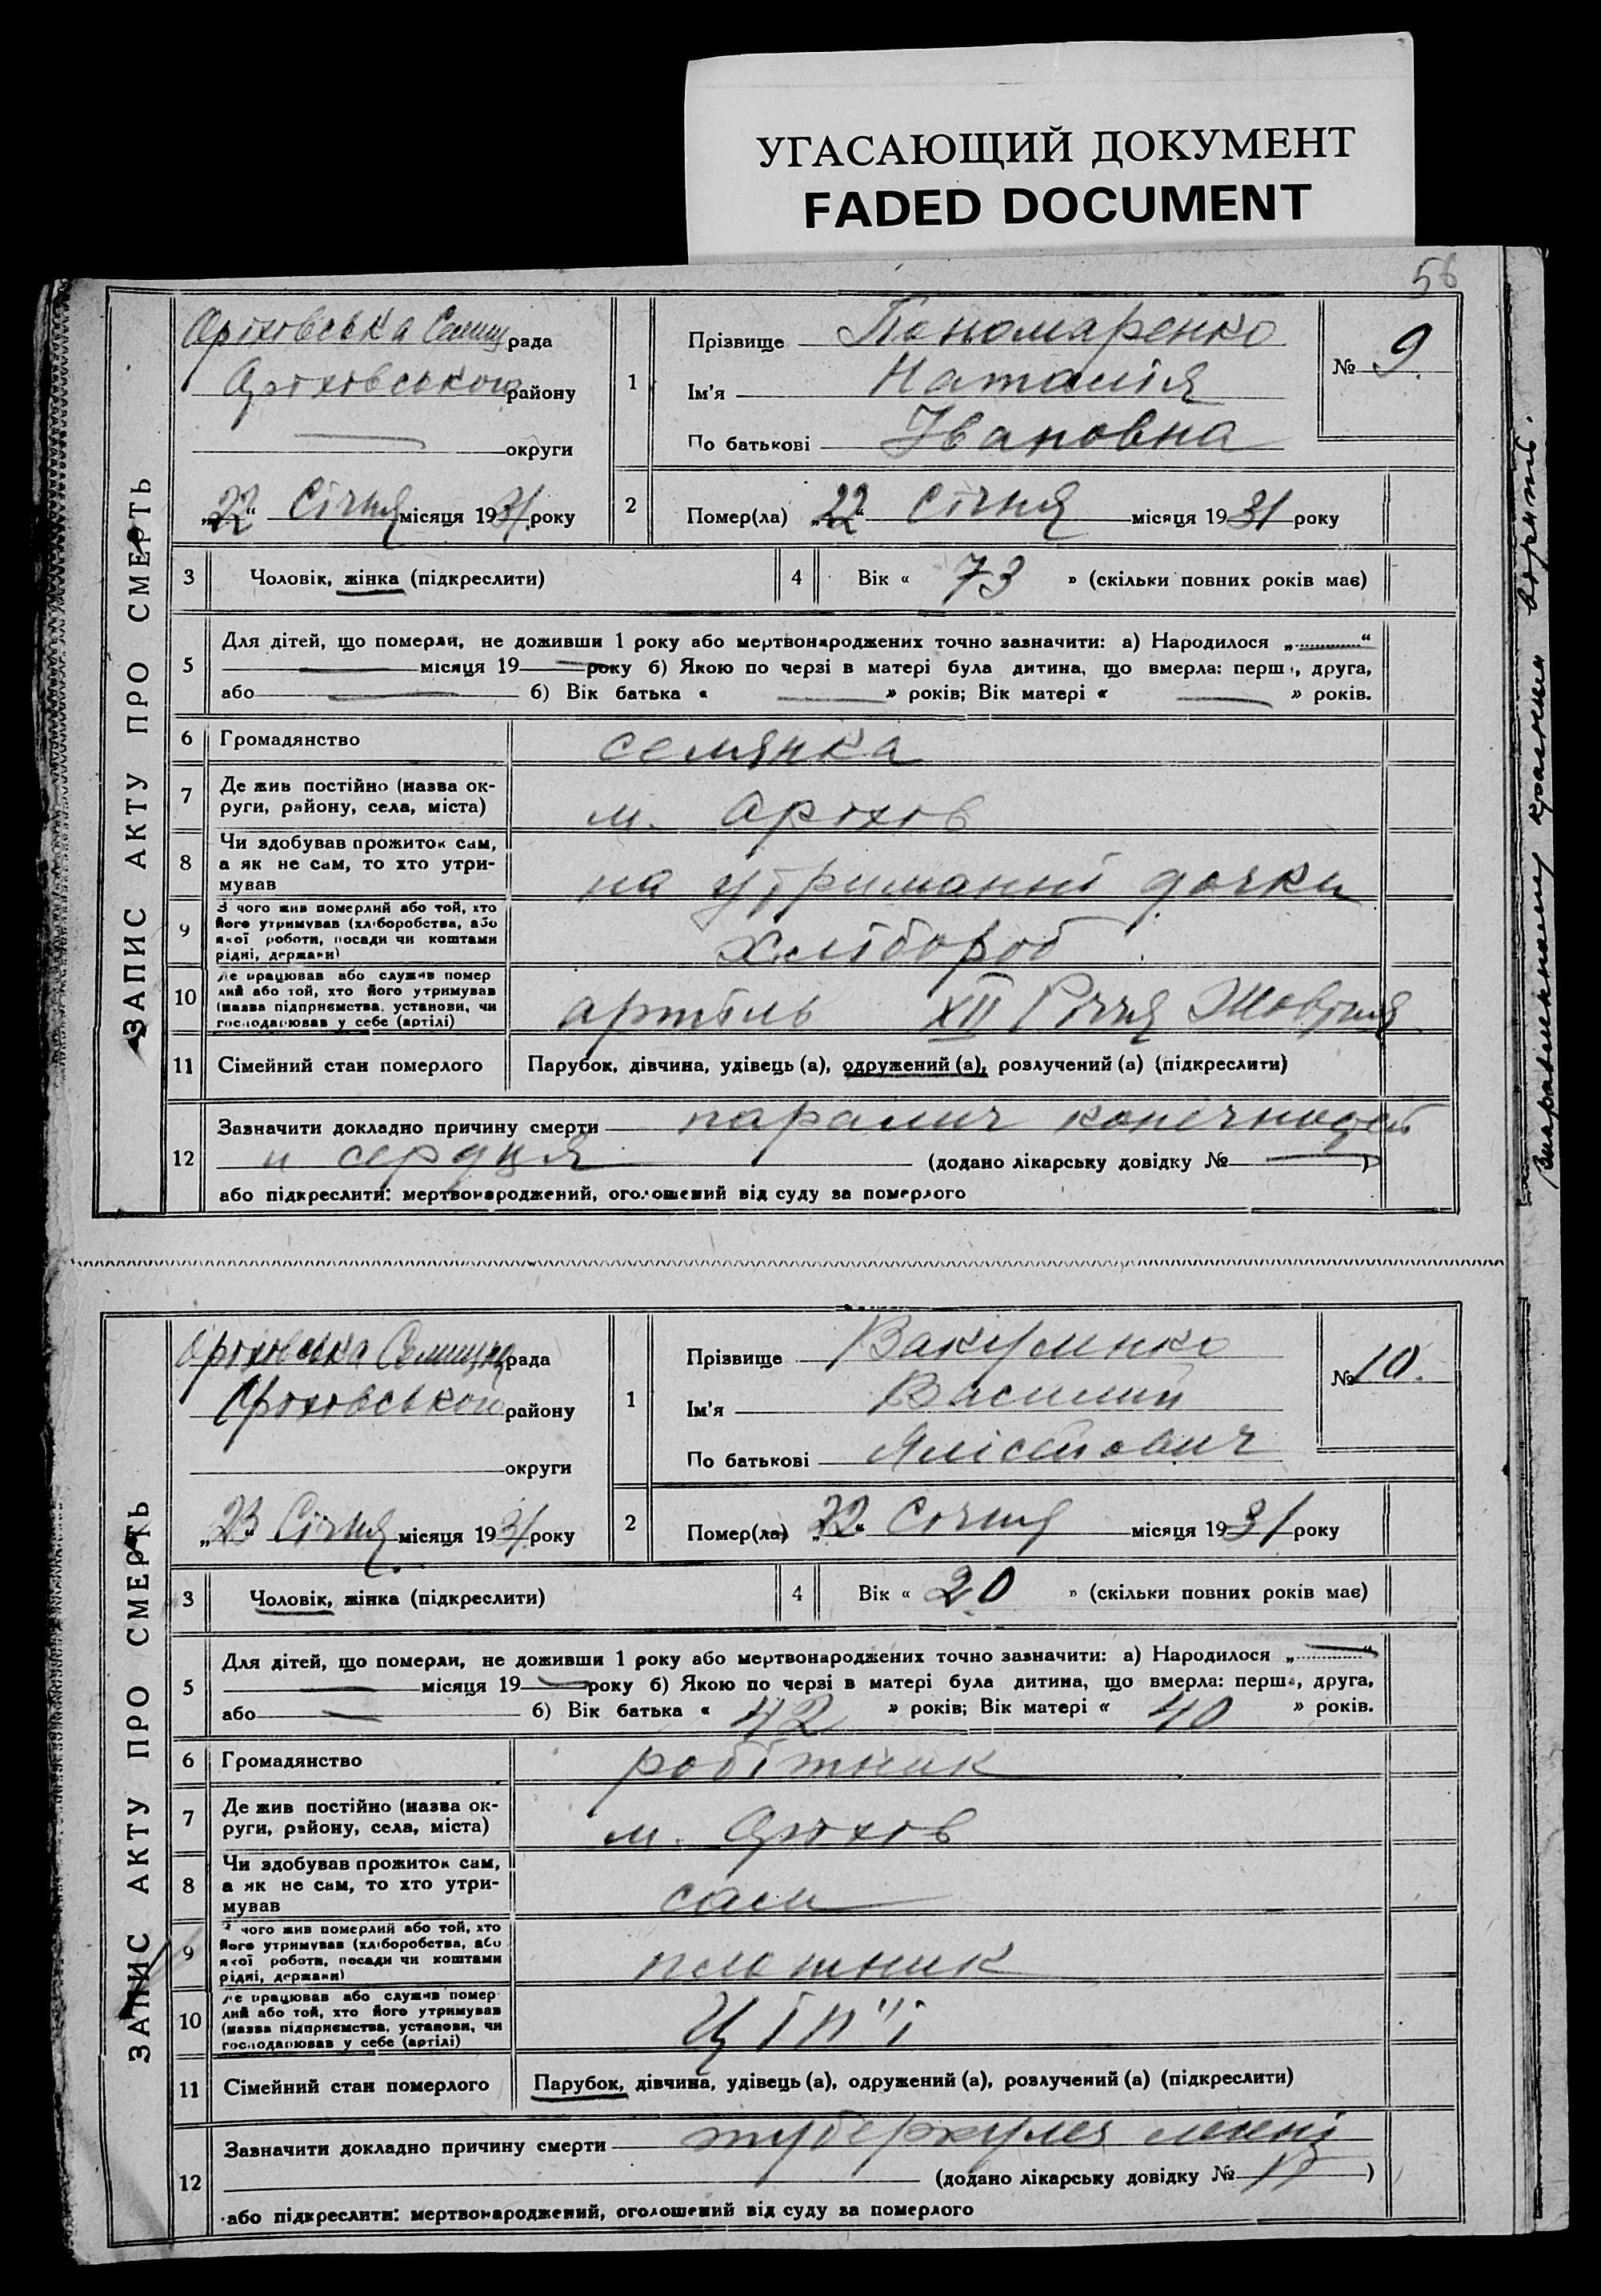 УГАСАЮЩИЙ ДОКУМЕНТ
FADED DOCUMENT
56
ЗАПИС АКТУ ПРО СМЕРТЬ
Оріховська Селищ рада
Оріховського району
округи
„22“ Січня місяця 1931 року
1
Прізвище Пономаренко
Ім'я Наталія
По батькові Івановна
№ 9.
2
Помер(ла) „22“ Січня місяця 1931 року
3 Чоловік, жінка (підкреслити)
4 Вік « 73 » (скільки повних років має)
5
Для дітей, що померли, не доживши 1 року або мертвонароджених точно зазначити: а) Народилося „ “
місяця 19 року б) Якою по черзі в матері була дитина, що вмерла: перша, друга,
або б) Вік батька « » років; Вік матері « » років.
6 Громадянство селянка
7 Де жив постійно (назва ок-
руги, району, села, міста)
м. Оріхов
8 Чи здобував прожиток сам,
а як не сам, то хто утри-
мував
на утриманні дочки
9 З чого жив померлий або той, хто
його утримував (хліборобства, або
якої роботи, посади чи коштами
рідні, держави)
Хлібороб
10 Де працював або служив помер
лий або той, хто його утримував
(назва підприємства, установи, чи
господарював у себе (артілі)
артіль XII Річчя Жовтня
11 Сімейний стан померлого Парубок, дівчина, удівець (а), одружений (а), розлучений (а) (підкреслити)
12 Зазначити докладно причину смерти параліч конечностей
и сердця (додано лікарську довідку № )
або підкреслити: мертвонароджений, оголошений від суду за померлого
ЗАПИС АКТУ ПРО СМЕРТЬ
Оріховська Селищна рада
Оріховського району
округи
„23“ Січня місяця 1931 року
1
Прізвище Вакуленко
Ім'я Василий
По батькові
№ 10.
2
Помер(ла) „22“ Січня місяця 1931 року
3 Чоловік, жінка (підкреслити)
4 Вік « 20 » (скільки повних років має)
5
Для дітей, що померли, не доживши 1 року або мертвонароджених точно зазначити: а) Народилося „ “
місяця 19 року б) Якою по черзі в матері була дитина, що вмерла: перша, друга,
або б) Вік батька « 42 » років; Вік матері « 40 » років.
6 Громадянство робітник
7 Де жив постійно (назва ок-
руги, району, села, міста)
м. Оріхов
8 Чи здобував прожиток сам,
а як не сам, то хто утри-
мував
сам
9 З чого жив померлий або той, хто
його утримував (хліборобства, або
якої роботи, посади чи коштами
рідні, держави)
10 Де працював або служив помер
лий або той, хто його утримував
(назва підприємства, установи, чи
господарював у себе (артілі)
11 Сімейний стан померлого Парубок, дівчина, удівець (а), одружений (а), розлучений (а) (підкреслити)
12 Зазначити докладно причину смерти туберкулез
(додано лікарську довідку № )
або підкреслити: мертвонароджений, оголошений від суду за померлого